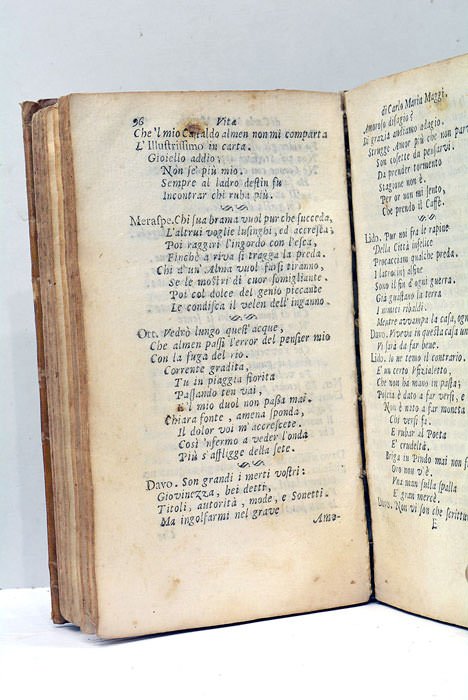 96 Vita
Che'l mio Castaldo almen non mi comparta
L'Illustrissimo in carta.
Gioiello addio;
Non se' più mio.
Sempre al ladro destin fù
Incontrar chi ruba più.
Meraspe. Chi sua brama vuol pur che succeda,
L'altrui voglie lusinghi, ed accresta;
Poi raggiri l'ingordo con l'esca,
Finchè a riva si tragga la preda.
Chi d'un' Alma vuol farsi tiranno,
Se le mostri di cuor somigliante.
Poi col dolce del genio piccante
Le condisca il velen dell'inganno.
Ott. Vedrò lungo quest' acque,
Che almen passi l'error del pensier mio
Con la fuga del rio.
Corrente gradita,
Tu in piaggia fiorita
Passando ten vai,
E'l mio duol non passa mai.
Chiara fonte, amena sponda,
Il dolor voi m'accrescete.
Così 'nfermo a veder l'onda
Più s'affligge della sete.
Davo. Son grandi i merti vostri:
Giovinezza, bei detti,
Titoli, autorità, mode, e Sonetti.
Ma ingolfarmi nel grave
Amo-
di Carlo Maria Maggi.
Amoroso disagio?
Di grazia andiamo adagio.
Strugge Amor più che non è.
Son cosette da pensarvi.
Da prender tormento
Stagione non è.
Per or non mi sento,
Che prendo il Caffè.
Lido. Pur noi fra le rapine
Della Città infelice
Procacciam qualche preda.
I latrocinj alfine
Sono il fin d'ogni guerra.
Già guastano la terra
I nimici ribaldi.
Mentre avvampa la casa, ogn
Davo. Viveve in questa casa un
Vi sarà da far bene.
Lido. Io ne temo il contrario.
E' un certo Vfizialetto,
Che non ha mano in pasta;
Poscia è dato a far versi, e
Non è nato a far moneta
Chi versi fa.
E rubar al Poeta
E' crudeltà.
Briga in Pindo mai non f
Oro non v'è.
Vna man sulla spalla
E' gran mercè.
Davo. Non vi son che scrittur
E